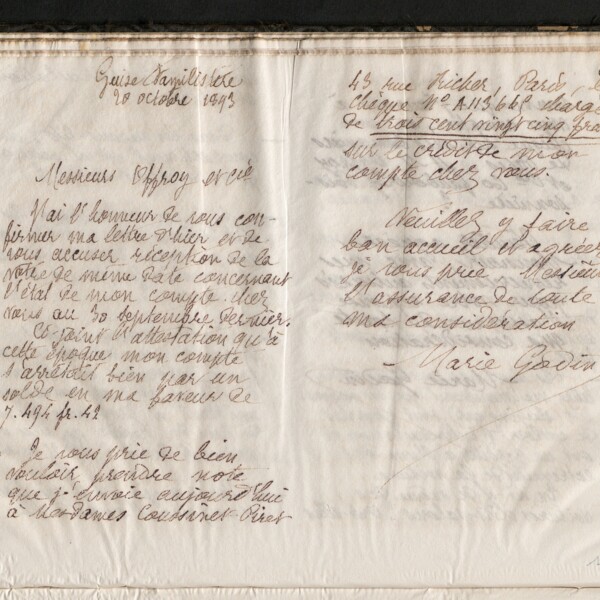 Guise Familistère
20 octobre 1893
Messieurs Offroy et cie
J'ai l'honneur de vous con-
firmer ma lettre d'hier et de
vous accuser réception de la
vôtre de même date concernant
l'état de mon compte chez
vous au 30 septembre dernier.
Ci joint l'attestation qu'à
cette époque mon compte
s'arrêtait bien par un
solde en ma faveur de
7.494 fr. 42
Je vous prie de bien
vouloir prendre note
que j'envoie aujourd'hui
à Mesdames Coussinet Piret
43 rue Richer, Paris,
chèque N° A113.645 chargé
de trois cent vingt cinq fra
sur le crédit de mon
compte chez vous.
Veuillez y faire
bon accueil et agréez
je vous prie Messieurs
l'assurance de toute
ma considération
Marie Godin